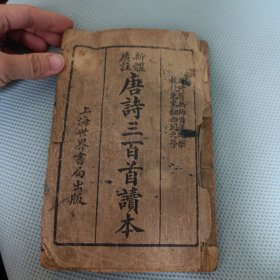 新體
廣註
唐詩三百首讀本
上海世界書局出版